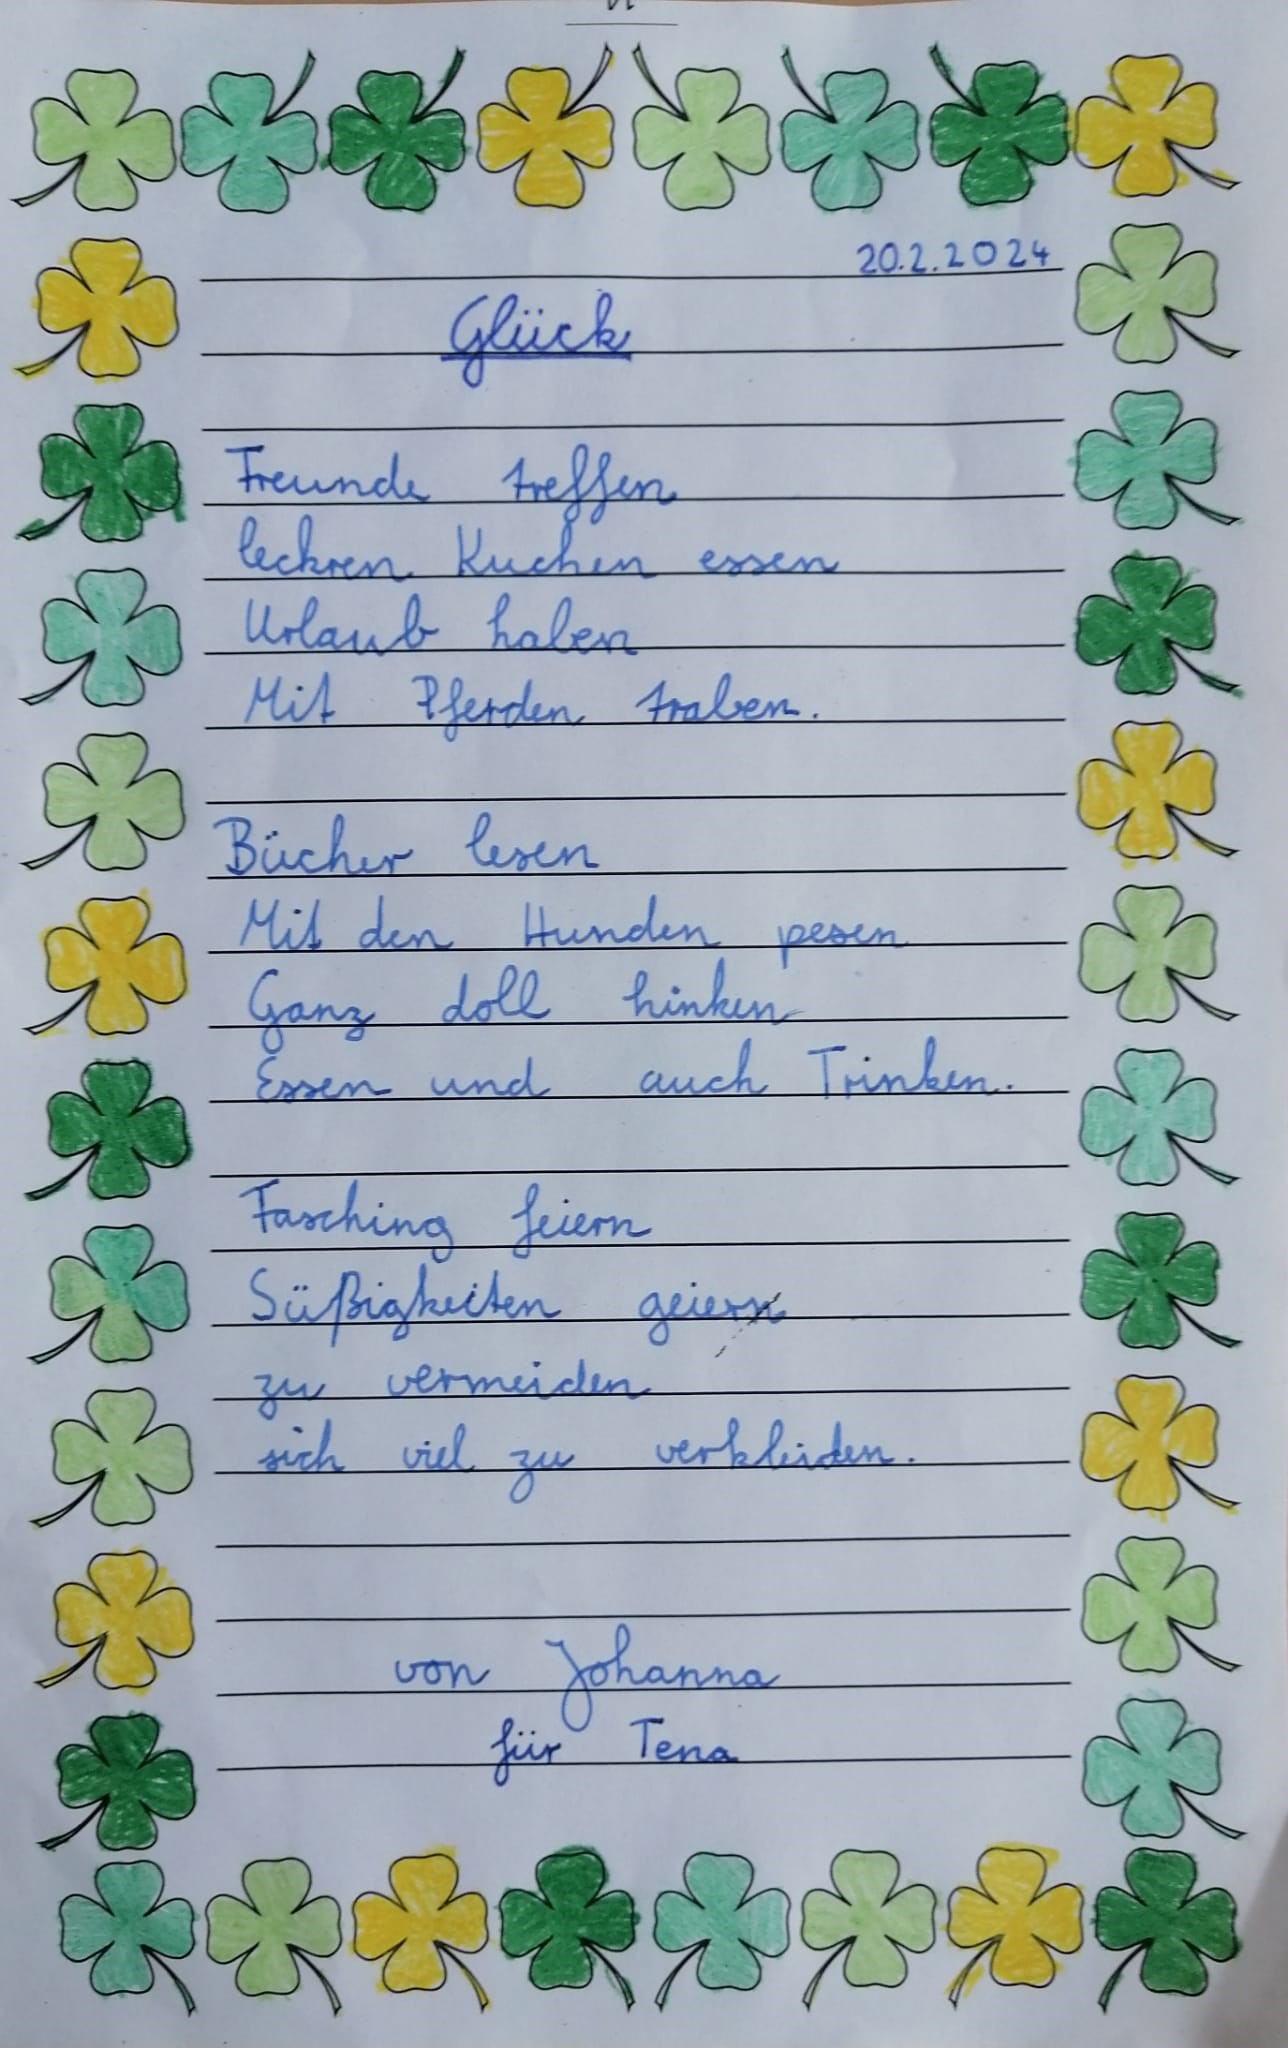 20.2.2024
Glück
Freunde treffen
leckren Kuchen essen
Urlaub haben
Mit Pferden traben.
Bücher lesen
Mit den Hunden pesen
Ganz doll hinken
Essen und auch Trinken.
Fasching feiern
Süßigkeiten geiern
zu vermeiden
sich viel zu verkleiden.
von Johanna
für Tena